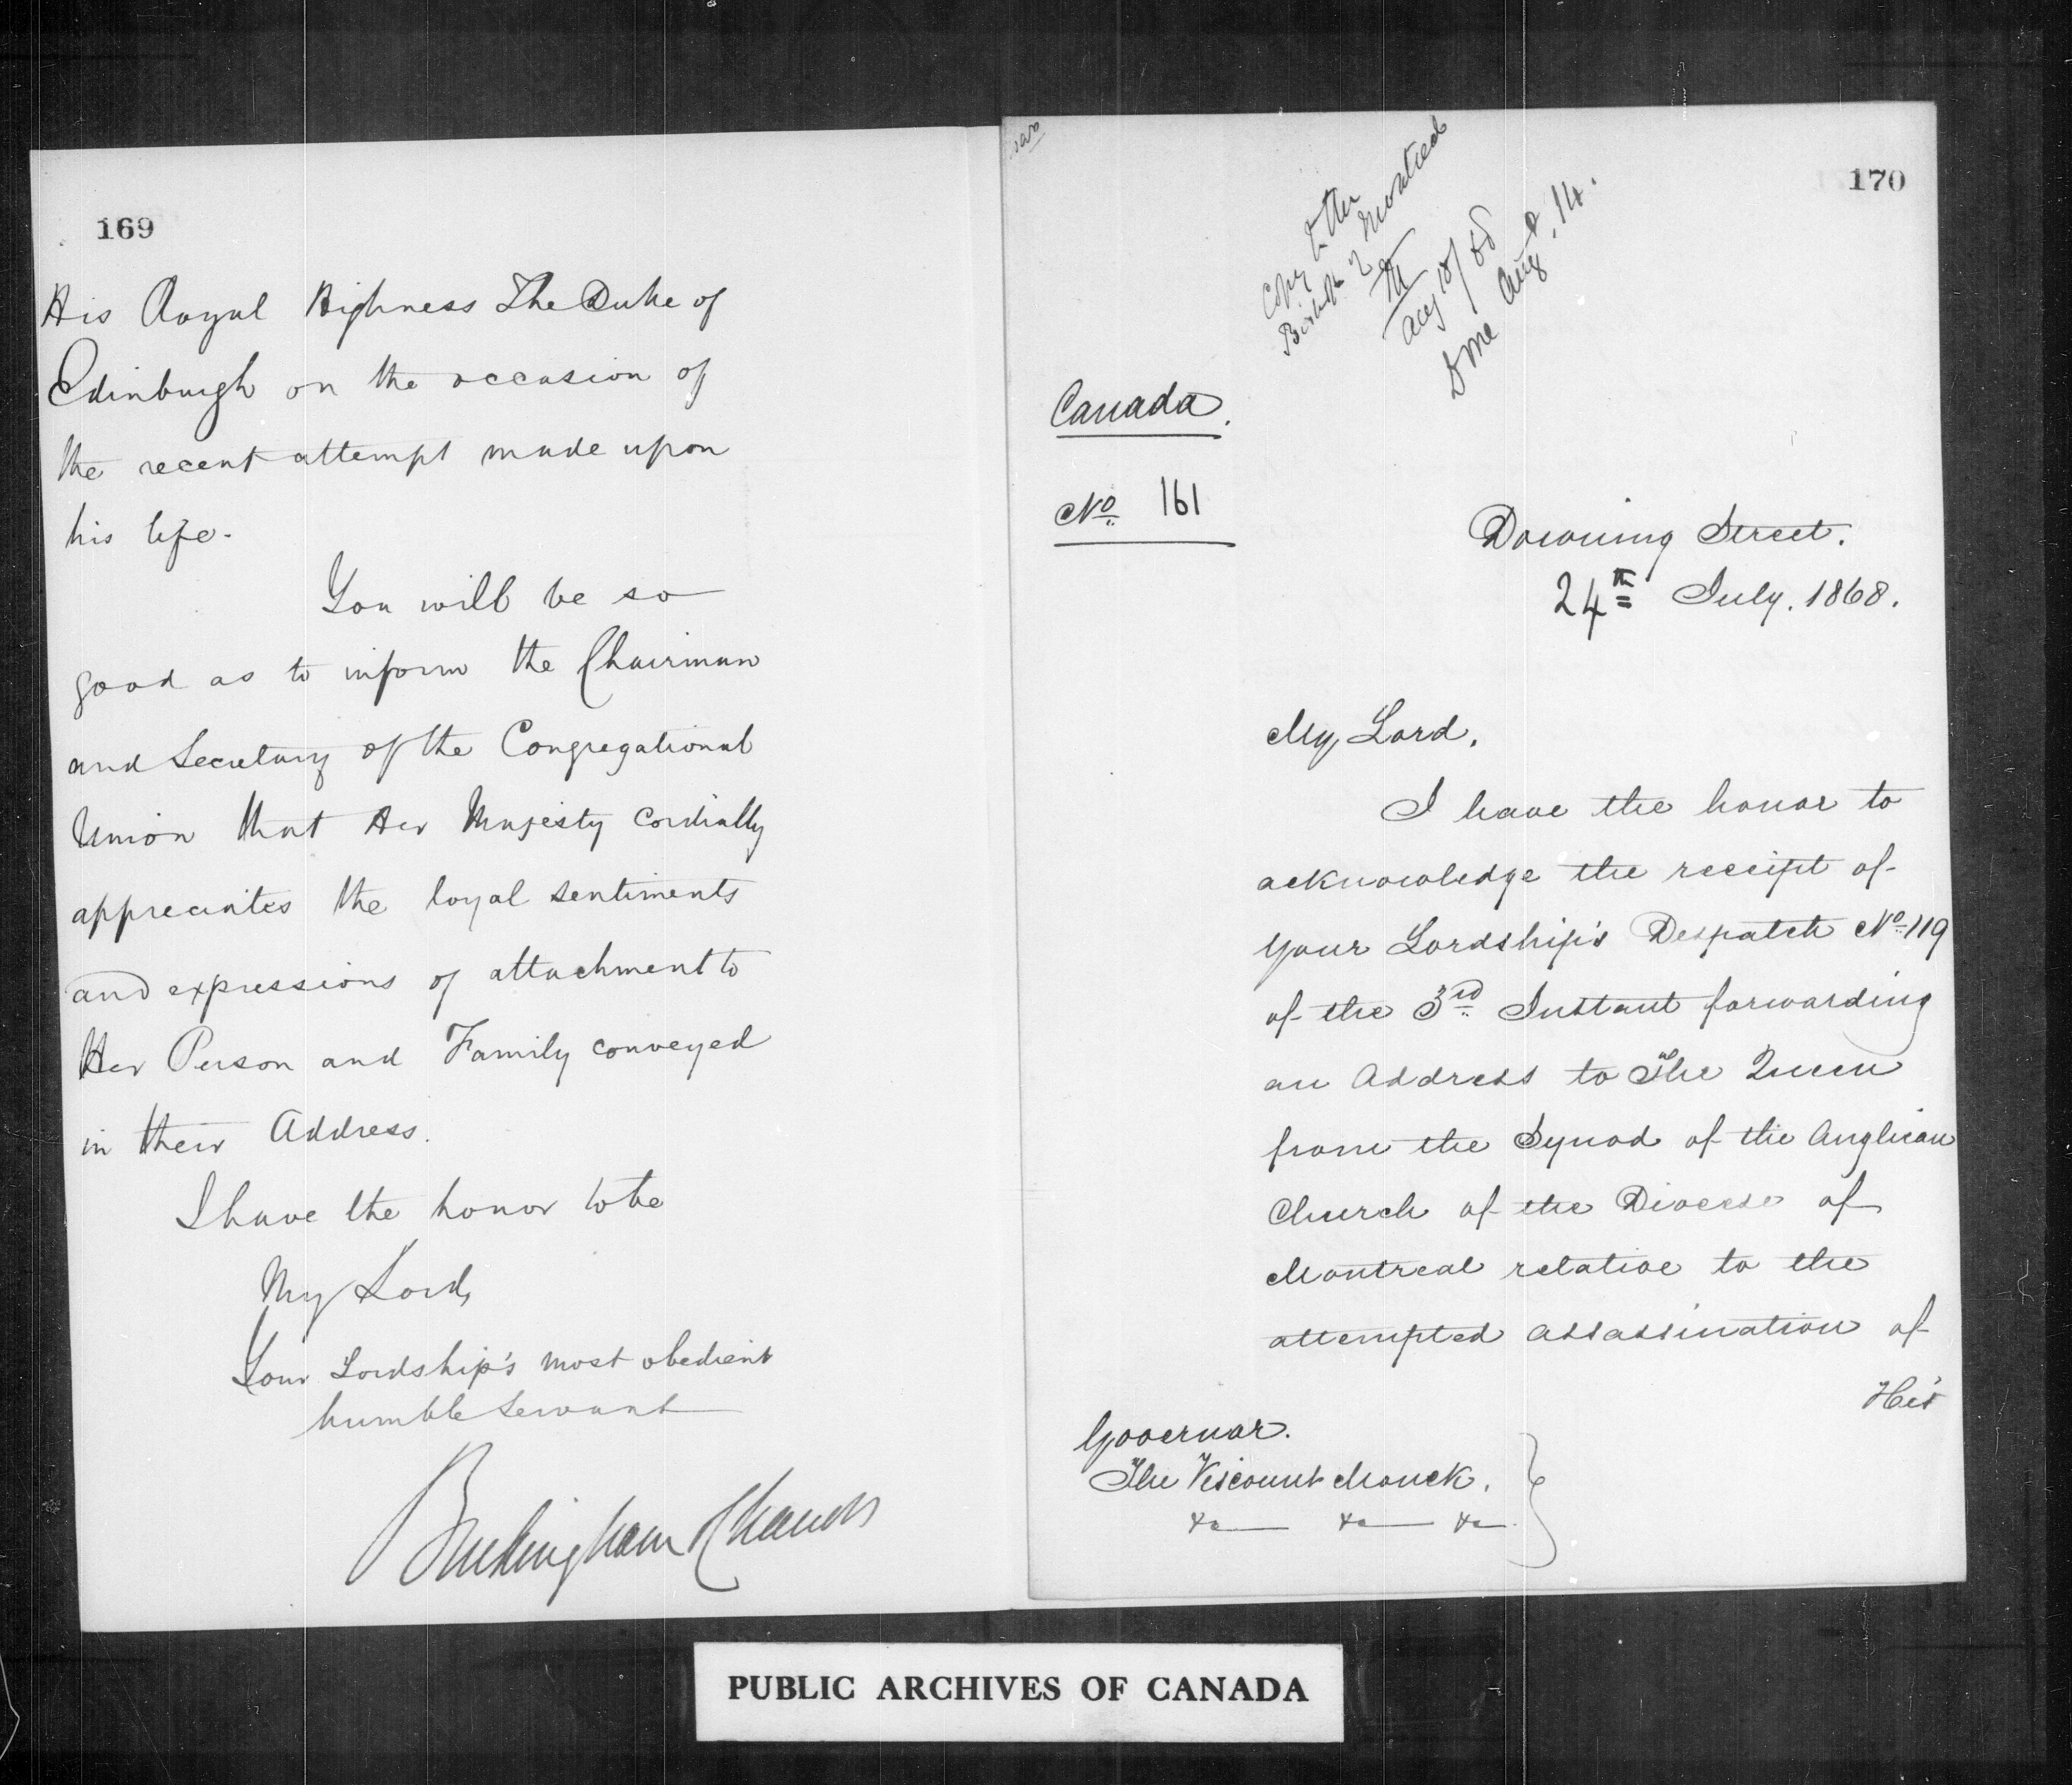 169
His Royal Highness The Duke of
Edinburgh on the occasion of
the recent attempt made upon
his life.
You will be so
good as to inform the Chairman
and Secretary of the Congregational
Union that Her Majesty cordially
appreciates the loyal sentiments
and expressions of attachment to
Her Person and Family conveyed
in their Address.
I have the honor to be
My Lord,
Your Lordship's most obedient
humble Servant
Buckingham Chandos
170
Copy to the
Bishop of Montreal
Aug 10/68
Done Aug. 14.
Canada.
No. 161
Downing Street.
24th July. 1868.
My Lord,
I have the honor to
acknowledge the receipt of
Your Lordship's Despatch No. 119
of the 3rd Instant forwarding
an Address to The Queen
from the Synod of the Anglican
Church of the Diocese of
Montreal relative to the
attempted assassination of
His
Governor.
The Viscount Monck.
&c &c &c
PUBLIC ARCHIVES OF CANADA